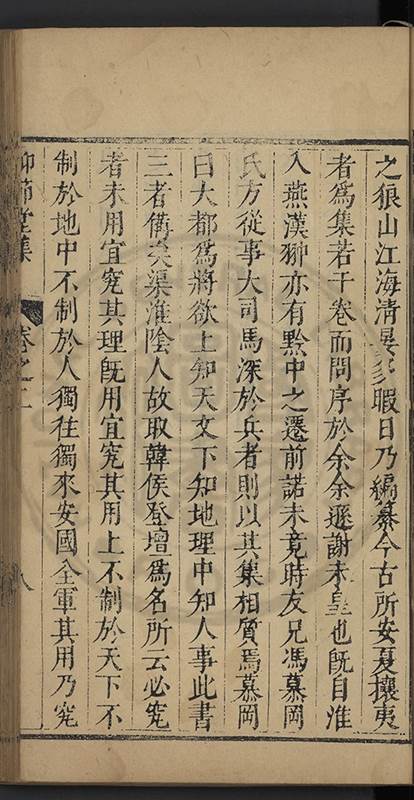 之狼山江海清晏多暇日乃編纂今古所安夏攘夷
者為集若干卷而問序於余余遜謝未皇也既自淮
入燕漢翀亦有黔中之遷前諾未竟時友兄馮慕岡
氏方從事大司馬深於兵者則以其集相質焉慕岡
曰大都為將欲上知天文下知地理中知人事此書
三者備矣渠淮陰人故取韓侯登壇為名所云必究
者未用宜究其理既用宜究其用上不制於天下不
制於地中不制於人獨往獨來安國全軍其用乃究
仰節堂集 卷之二 八